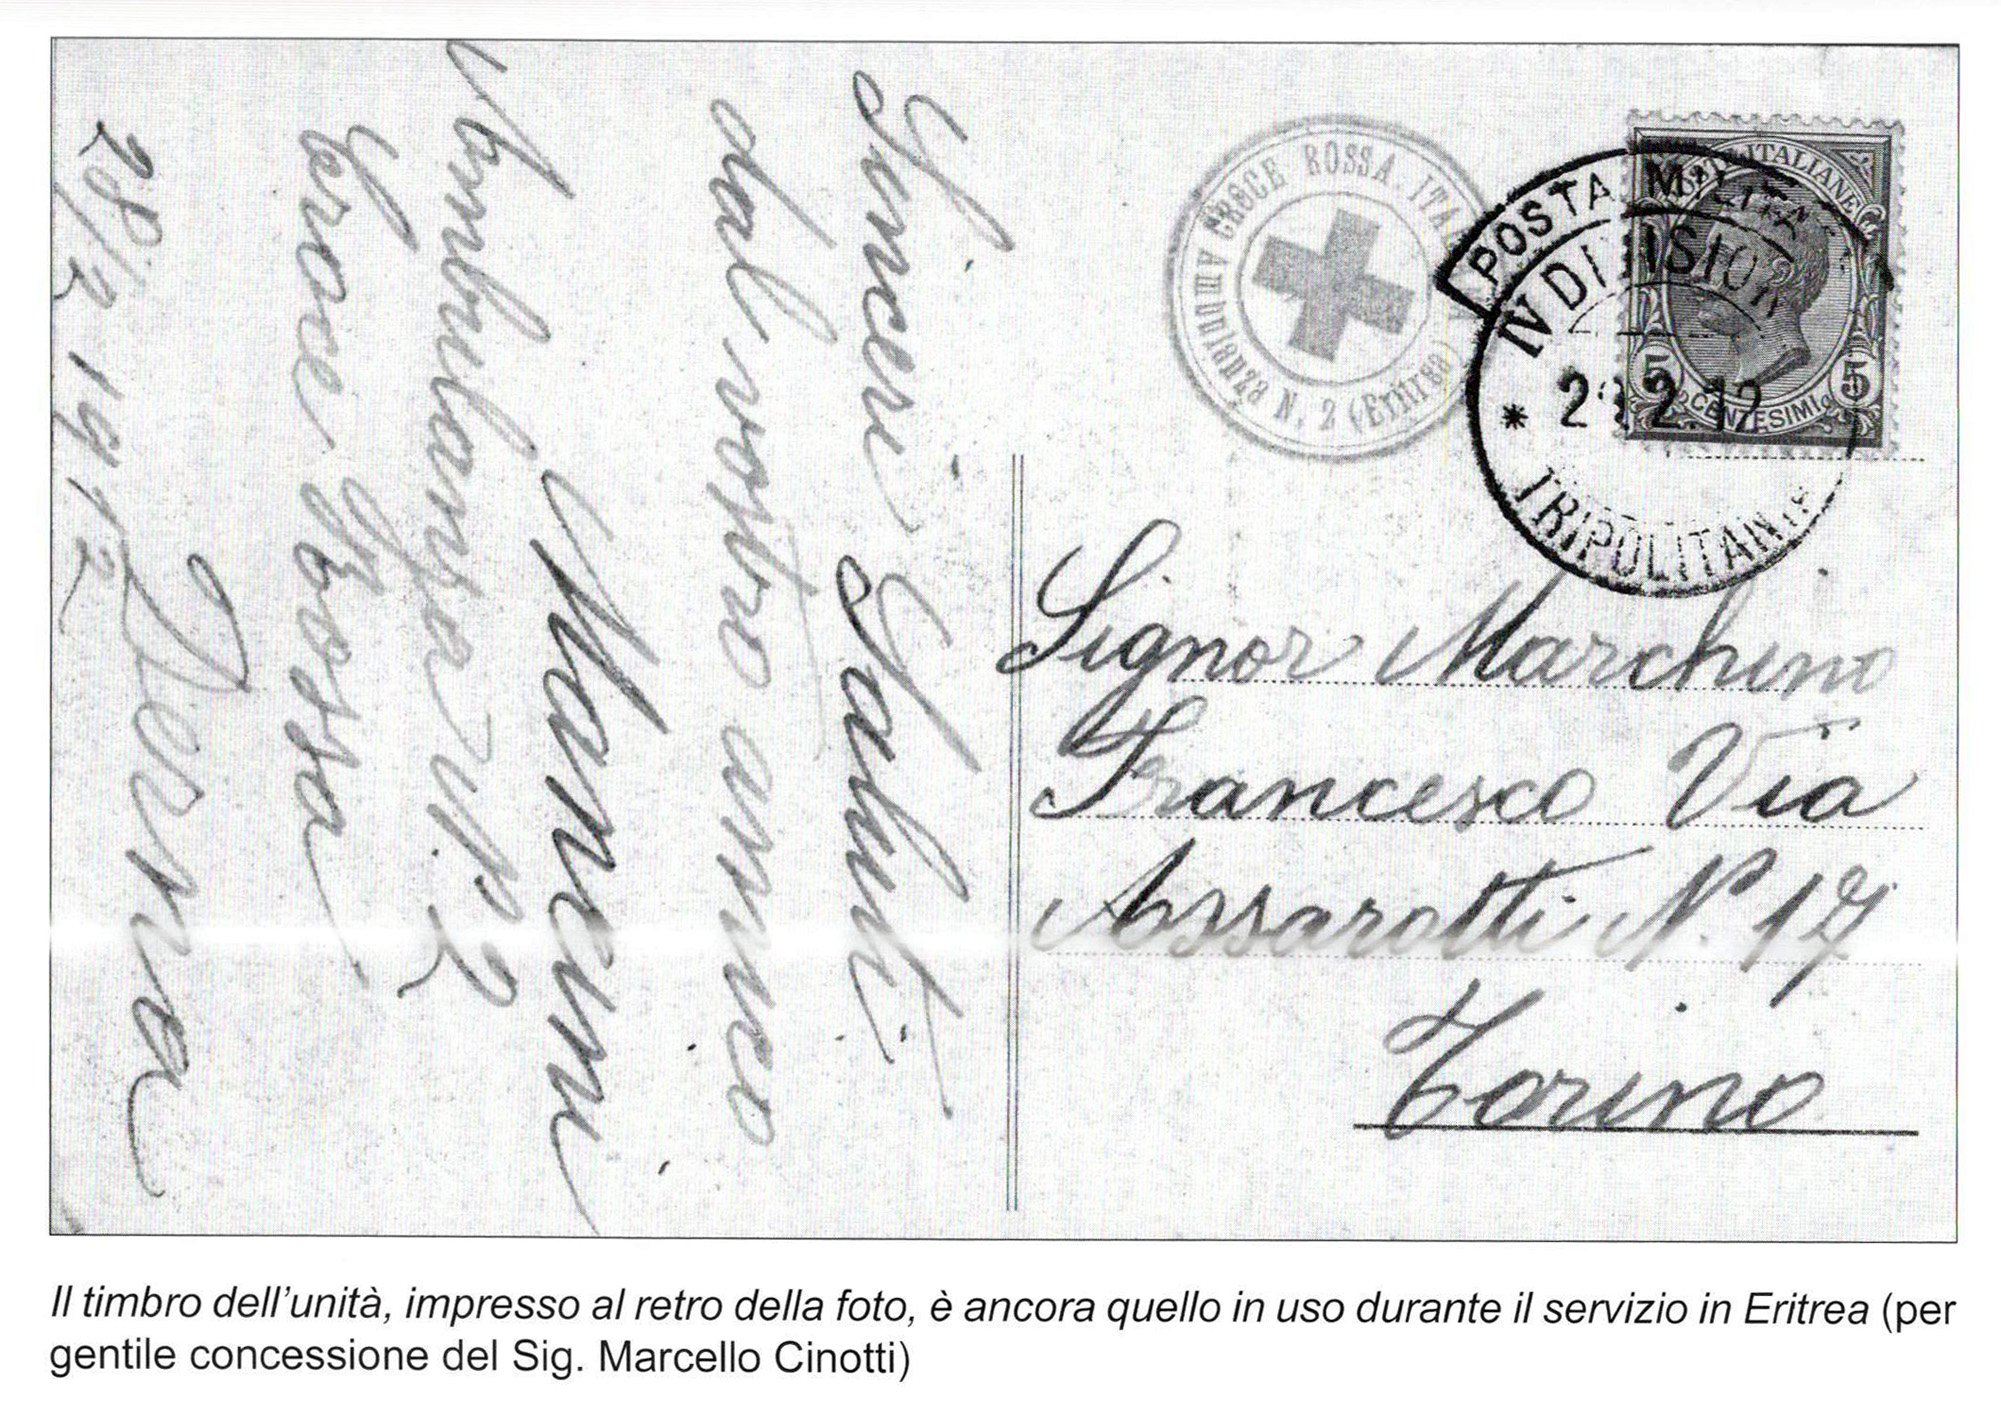 Sinceri Saluti
dal vostro amico
Maneini
Ambulanza N. 2
Croce Rossa
Derna
28/2 1912
CROCE ROSSA ITALIANA
Ambulanza N. 2 (Eritrea)
POSTE ITALIANE
5 5
CENTESIMI
POSTA MILITA
IV DIVISION
2 .2.12
* TRIPOLITANIA
Signor Marchino
Francesco Via
Assarotti N. 17
Torino
Il timbro dell'unità, impresso al retro della foto, è ancora quello in uso durante il servizio in Eritrea (per
gentile concessione del Sig. Marcello Cinotti)